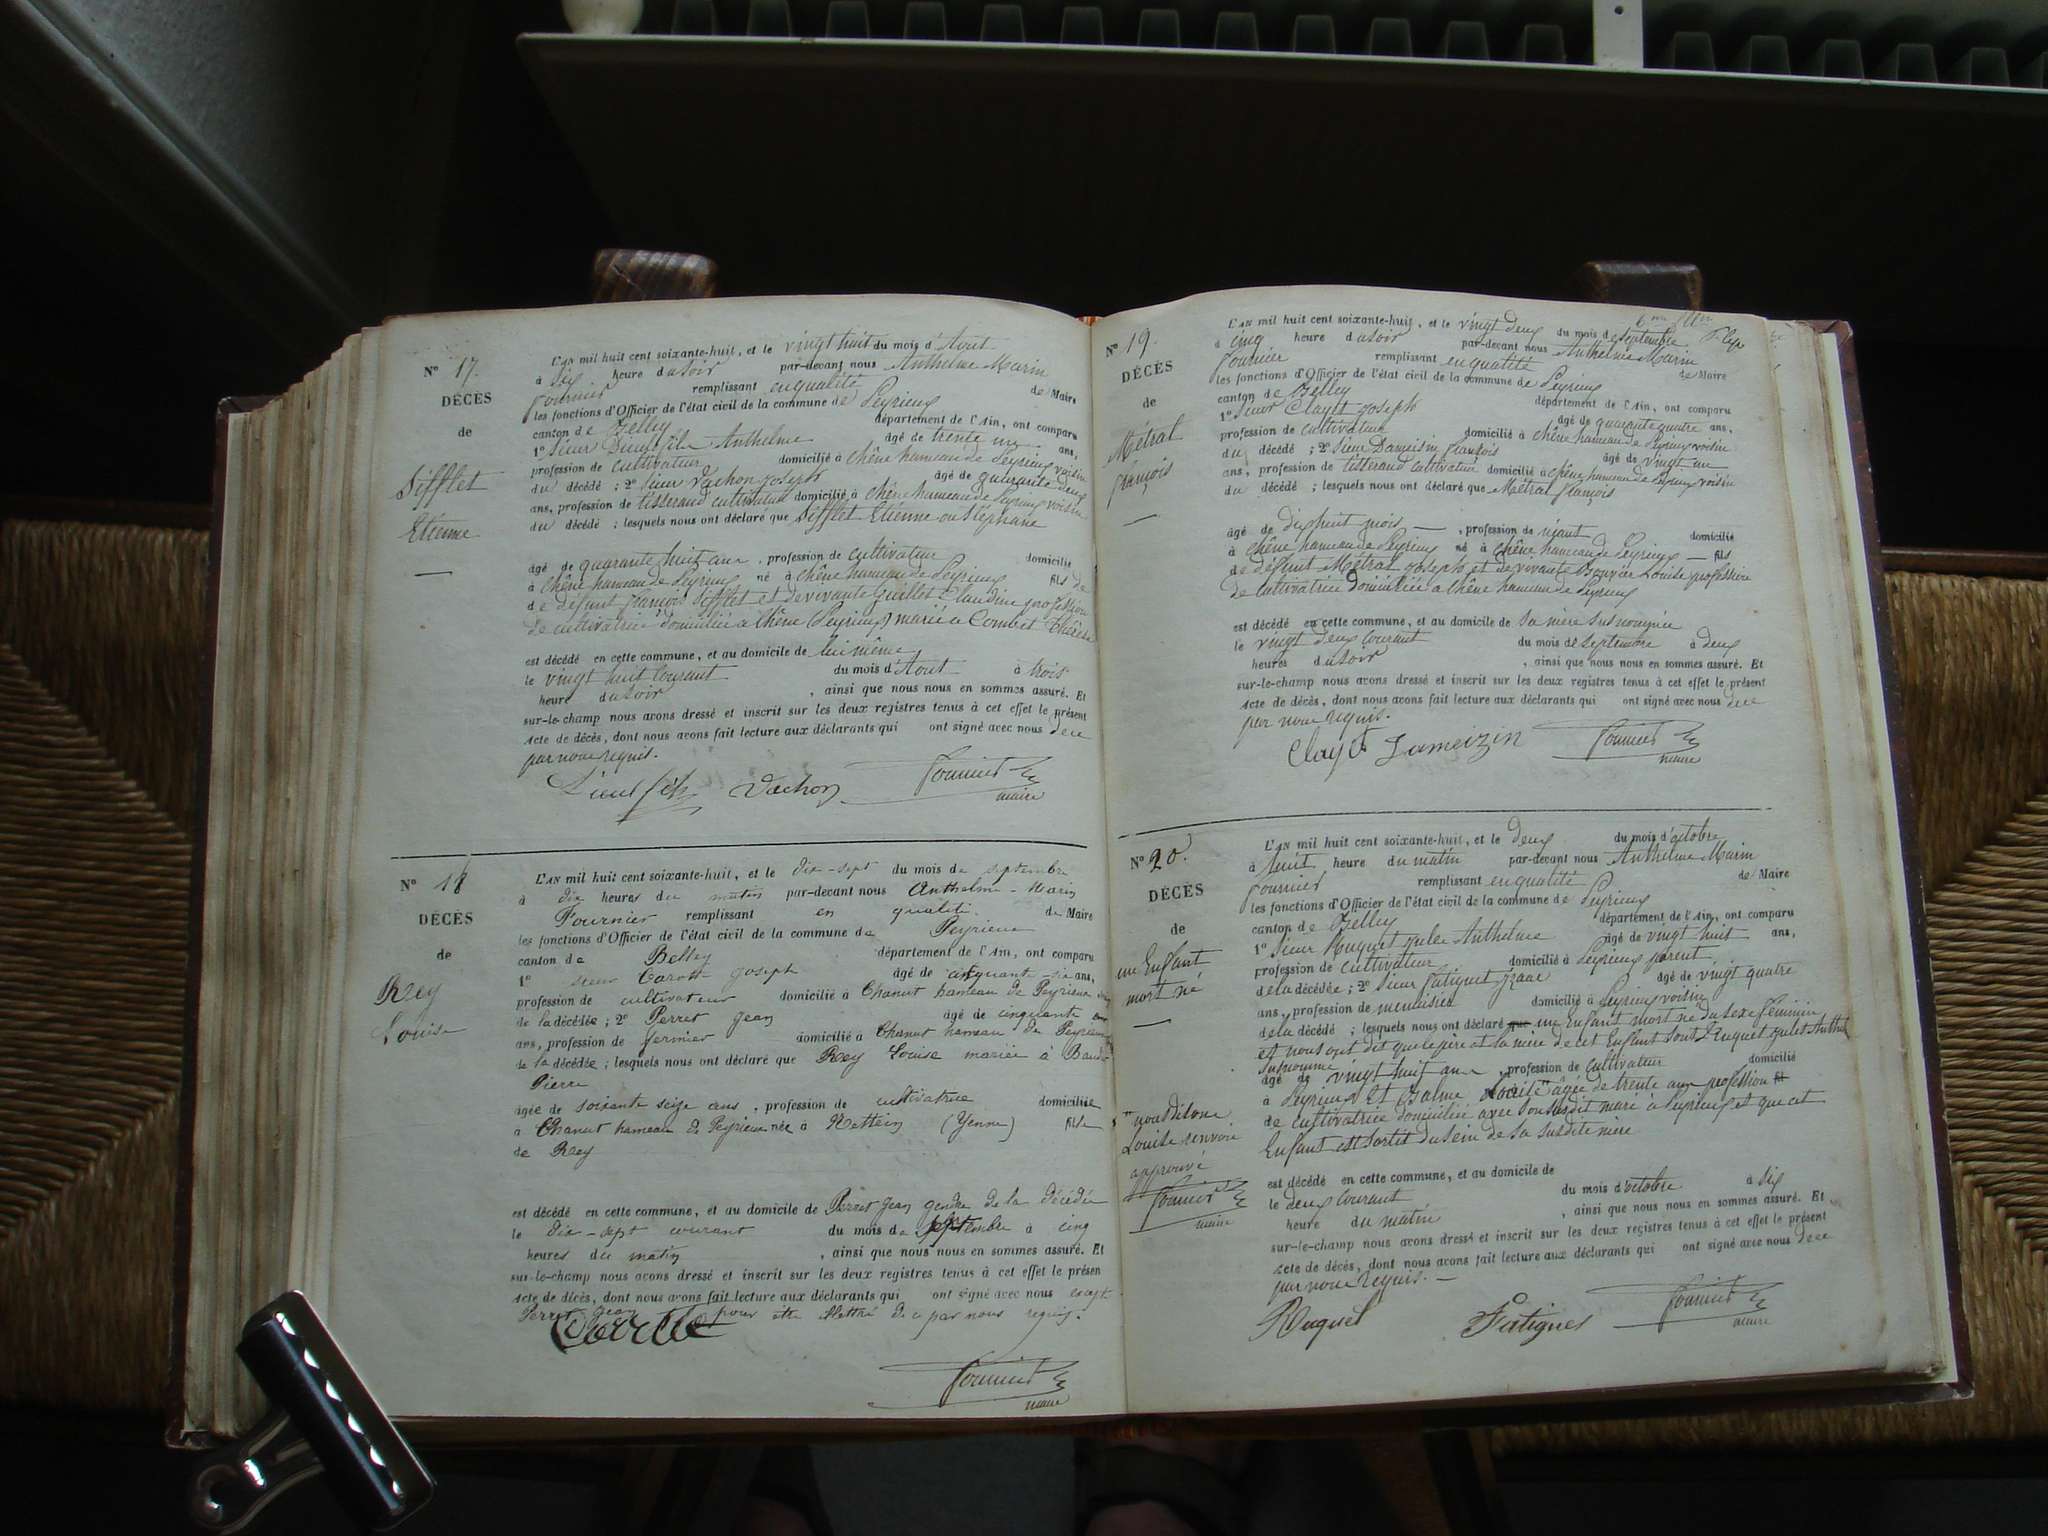 N° 17.
DÉCÈS
de
Sifflet
Etienne
L'AN mil huit cent soixante-huit, et le vingt huit du mois d'Aout
à six heure du soir par-devant nous Anthelme Marin
Fournier remplissant en qualité de Maire
les fonctions d'Officier de l'état civil de la commune de Peyrieux
canton de Belley département de l'Ain, ont comparu
1° Sieur Anthelme âgé de trente un ans,
profession de cultivateur domicilié à Chêne hameau de Peyrieux voisin
du décédé ; 2° Sieur Vachon Joseph âgé de quarante deux
ans, profession de tisserand cultivateur domicilié à Chêne hameau de Peyrieux voisin
du décédé ; lesquels nous ont déclaré que Sifflet Etienne ou Stéphane
âgé de quarante huit ans , profession de cultivateur domicilié
à Chêne hameau de Peyrieux né à Chêne hameau de Peyrieux fils de
de défunt françois Sifflet et de vivante Guillet Claudine profession
de cultivatrice domiciliée à Chêne (Peyrieux) marié à Combet Thérèse
est décédé en cette commune, et au domicile de lui même
le vingt huit Courant du mois d'Aout à trois
heure du soir , ainsi que nous nous en sommes assuré. Et
sur-le-champ nous avons dressé et inscrit sur les deux registres tenus à cet effet le présent
acte de décès, dont nous avons fait lecture aux déclarants qui ont signé avec nous de ce
par nous requis.
Vachon Fournier
maire
N° 18
DÉCÈS
de
Rey
Louise
L'AN mil huit cent soixante-huit, et le dix-sept du mois de septembre
à dix heures du matin par-devant nous Anthelme-Marin
Fournier remplissant en qualité de Maire
les fonctions d'Officier de l'état civil de la commune de Peyrieux
canton de Belley département de l'Ain, ont comparu
1° sieur Joseph âgé de cinquant-six ans,
profession de cultivateur domicilié à Chanut hameau de Peyrieux
de la décédée ; 2° Perret Jean âgé de cinquante
ans, profession de fermier domicilié à Chanut hameau de Peyrieux
de la décédée ; lesquels nous ont déclaré que Rey Louise mariée à
Pierre
âgée de soixante seize ans , profession de cultivatrice domiciliée
à Chanut hameau de Peyrieux née à (Yenne) fille
de Rey
est décédée en cette commune, et au domicile de Perret Jean gendre de la décédée
le dix-sept courant du mois de septembre à cinq
heures du matin , ainsi que nous nous en sommes assuré. Et
sur-le-champ nous avons dressé et inscrit sur les deux registres tenus à cet effet le présen
acte de décès, dont nous avons fait lecture aux déclarants qui ont signé avec nous except
Perret Jean pour être illettré de ce par nous requis.
Fournier
maire
N° 19.
DÉCÈS
de
Métral
françois
L'AN mil huit cent soixante-huit, et le vingt deux du mois de septembre
à cinq heure du soir par-devant nous Anthelme Marin
Fournier remplissant en qualité de Maire
les fonctions d'Officier de l'état civil de la commune de Peyrieux
canton de Belley département de l'Ain, ont comparu
1° Sieur Clayt Joseph âgé de quarante quatre ans,
profession de cultivateur domicilié à Chêne hameau de Peyrieux voisin
du décédé ; 2° Sieur Dameisin françois âgé de vingt un
ans, profession de tisserand cultivateur domicilié à Chêne hameau de Peyrieux voisin
du décédé ; lesquels nous ont déclaré que Métral françois
âgé de dix huit mois , profession de néant domicilié
à Chêne hameau de Peyrieux né à Chêne hameau de Peyrieux fils
de défunt Métral Joseph et de vivante Bouvier Louise profession
de Cultivatrice domiciliée à Chêne hameau de Peyrieux
est décédé en cette commune, et au domicile de Sa mère susnommée
le vingt deux Courant du mois de Septembre à deux
heures du soir , ainsi que nous nous en sommes assuré. Et
sur-le-champ nous avons dressé et inscrit sur les deux registres tenus à cet effet le présent
acte de décès, dont nous avons fait lecture aux déclarants qui ont signé avec nous de ce
par nous requis.
Clayt Fournier
maire
N° 20.
DÉCÈS
de
un Enfant
mort né
nous disons
Louise renvoi
approuvé
Fournier
maire
L'AN mil huit cent soixante-huit, et le deux du mois d'octobre
à huit heure du matin par-devant nous Anthelme Marin
Fournier remplissant en qualité de Maire
les fonctions d'Officier de l'état civil de la commune de Peyrieux
canton de Belley département de l'Ain, ont comparu
1° Sieur Huguet Jules Anthelme âgé de vingt huit ans,
profession de cultivateur domicilié à Peyrieux parent
de la décédée ; 2° Sieur Fatiguet âgé de vingt quatre
ans, profession de menuisier domicilié à Peyrieux voisin
de la décédé ; lesquels nous ont déclaré que un Enfant mort né du sexe féminin
et nous ont dit que le père et la mère de cet Enfant sont Huguet Jules
susnommé
âgé de vingt huit ans , profession de Cultivateur domicilié
à Peyrieux Et Balme âgée de trente ans profession
de cultivatrice domiciliée avec son susdit mari à Peyrieux et que cet
Enfant est sortit du sein de Sa susdite mère
est décédé en cette commune, et au domicile de
le deux Courant du mois d'octobre à six
heure du matin , ainsi que nous nous en sommes assuré. Et
sur-le-champ nous avons dressé et inscrit sur les deux registres tenus à cet effet le présent
acte de décès, dont nous avons fait lecture aux déclarants qui ont signé avec nous de ce
par nous requis.
Huguet Fatiguet Fournier
maire